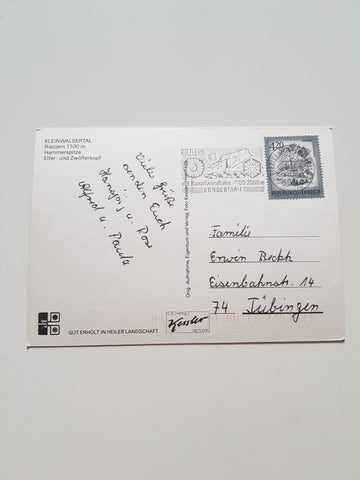 KLEINWALSERTAL
Riezlern 1100 m
Hammerspitze
Elfer- und Zwölferkopf
Viele Grüße
senden Euch
Hansjörg u. Rose
Alfred u. Paula
RIEZLERN
mit Kanzelwandbahn · 1100-2000 m
SONDERTARIF
4.20
REPUBLIK ÖSTERREICH
Familie
Erwin Beckh
Eisenbahnstr. 14
74 Tübingen
Orig.-Aufnahme, Eigentum und Verlag, Foto Kessler
Kessler
RIEZLERN
GUT ERHOLT IN HEILER LANDSCHAFT